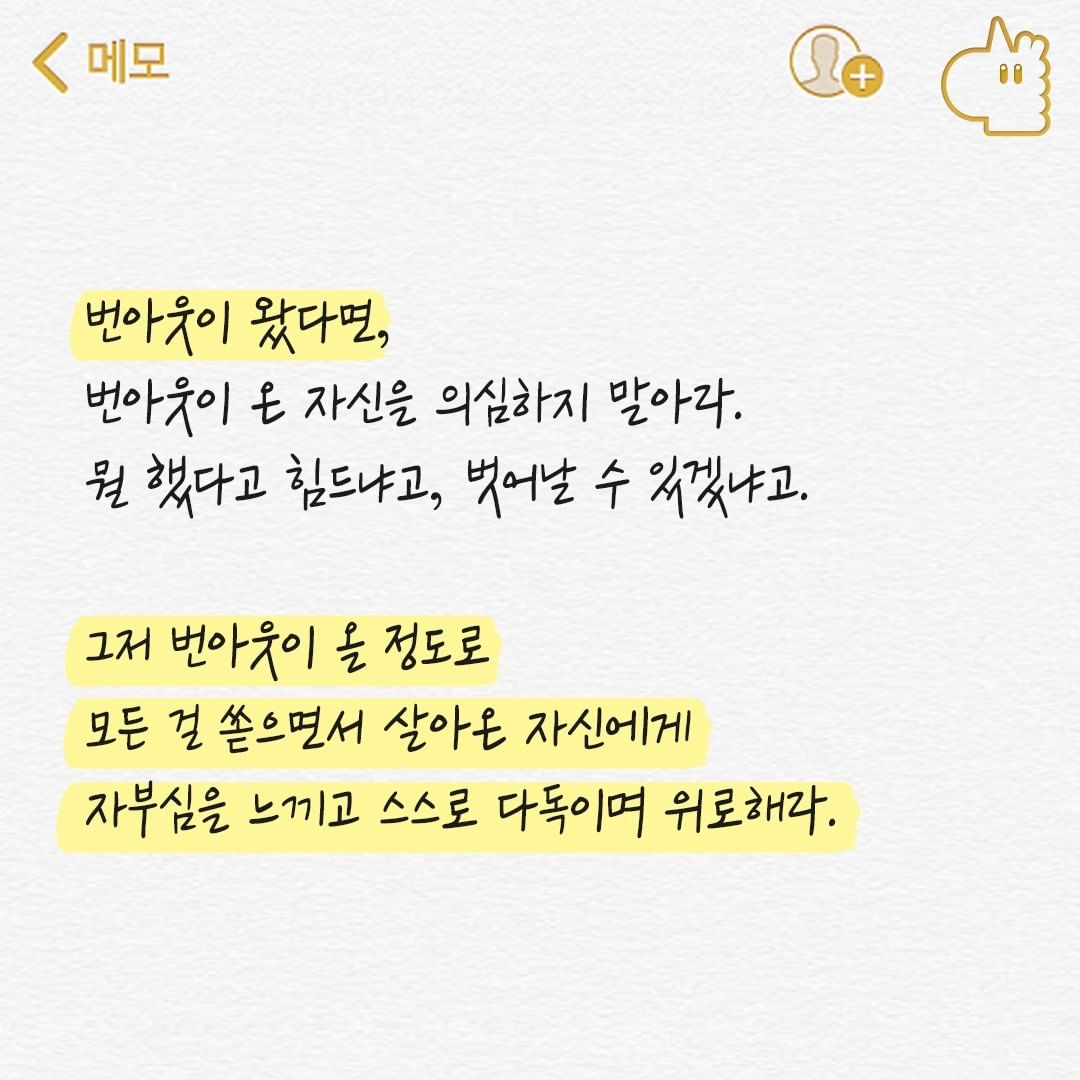 메모
번아웃이 왔다면,
번아웃이 온 자신을 의심하지 말아라.
뭘 했다고 힘드냐고, 벗어날 수 있겠냐고.
그저 번아웃이 올 정도로
모든 걸 쏟으면서 살아온 자신에게
자부심을 느끼고 스스로 다독이며 위로해라.